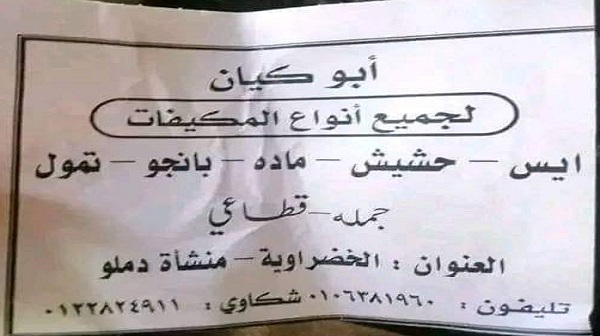 أبو كيان
لجميع أنواع المكيفات
ايس - حشيش - ماده - بانجو - تمول
جمله - قطاعي
العنوان : الخضراوية - منشأة دملو
تليفون : ٠١٠٦٣٨١٩٦٠ شكاوي : ٠١٢٢٨٢٤٩١١